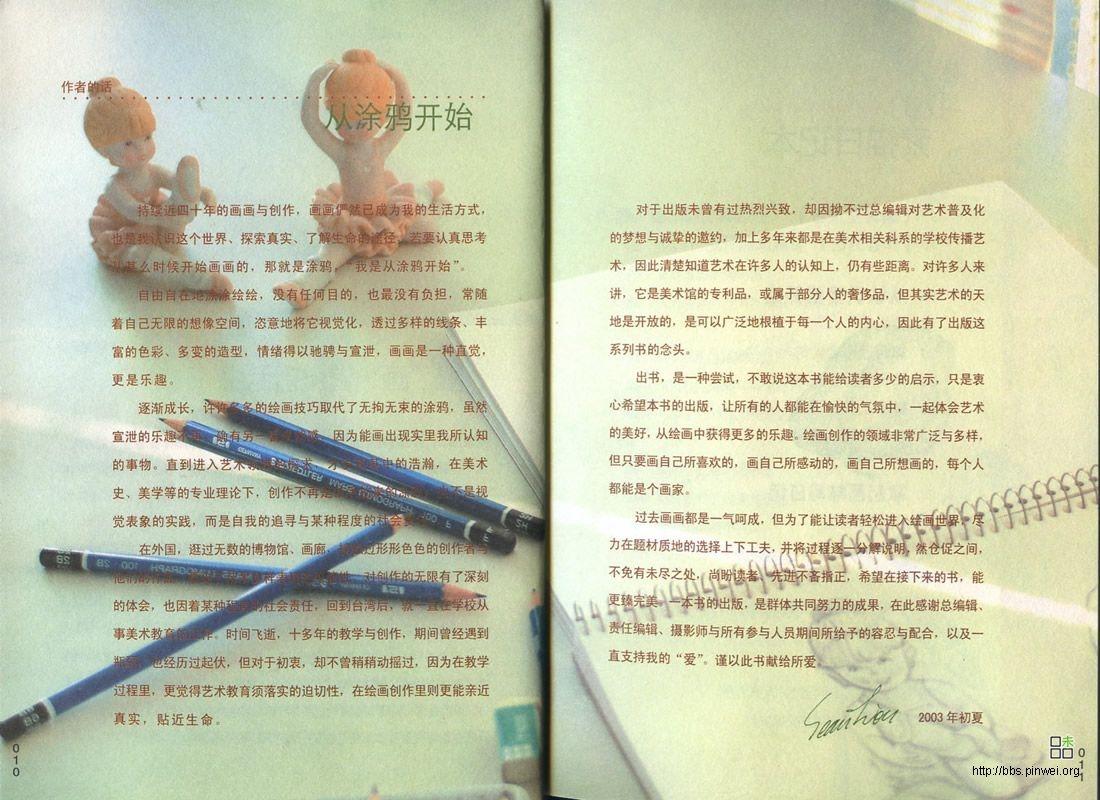 作者的话
从涂鸦开始
持续近四十年的画画与创作，画画俨然已成为我的生活方式，
也是我认识这个世界、探索真实、了解生命的途径。若要认真思考
从甚么时候开始画画的，那就是涂鸦，“我是从涂鸦开始”。
自由自在地涂涂绘绘，没有任何目的，也最没有负担，常随
着自己无限的想像空间，恣意地将它视觉化，透过多样的线条、丰
富的色彩、多变的造型，情绪得以驰骋与宣泄，画画是一种直觉，
更是乐趣。
逐渐成长，许许多多的绘画技巧取代了无拘无束的涂鸦，虽然
宣泄的乐趣不再，因为能画出现实里我所认知
的事物。直到进入艺术的浩瀚，在美术
史、美学等的专业理论下，创作不再是视
觉表象的实践，而是自我的追寻与某种程度的社会
在外国，逛过无数的博物馆、画廊，形形色色的创作者与
对创作的无限有了深刻
的体会，也因着某种程度的社会责任，回到台湾后，就一直在学校从
事美术教育的工作。时间飞逝，十多年的教学与创作，期间曾经遇到
瓶颈，也经历过起伏，但对于初衷，却不曾稍稍动摇过，因为在教学
过程里，更觉得艺术教育须落实的迫切性，在绘画创作里则更能亲近
真实，贴近生命。
010
对于出版未曾有过热烈兴致，却因拗不过总编辑对艺术普及化
的梦想与诚挚的邀约，加上多年来都是在美术相关科系的学校传播艺
术，因此清楚知道艺术在许多人的认知上，仍有些距离。对许多人来
讲，它是美术馆的专利品，或属于部分人的奢侈品，但其实艺术的天
地是开放的，是可以广泛地根植于每一个人的内心，因此有了出版这
系列书的念头。
出书，是一种尝试，不敢说这本书能给读者多少的启示，只是衷
心希望本书的出版，让所有的人都能在愉快的气氛中，一起体会艺术
的美好，从绘画中获得更多的乐趣。绘画创作的领域非常广泛与多样，
但只要画自己所喜欢的，画自己所感动的，画自己所想画的，每个人
都能是个画家。
过去画画都是一气呵成，但为了能让读者轻松进入绘画世界，尽
力在题材质地的选择上下工夫，并将过程逐一分解说明，然仓促之间，
不免有未尽之处，尚盼读者、先进不吝指正，希望在接下来的书，能
更臻完美。一本书的出版，是群体共同努力的成果，在此感谢总编辑、
责任编辑、摄影师与所有参与人员期间所给予的容忍与配合，以及一
直支持我的“爱”。谨以此书献给所爱。
2003 年初夏
011
http://bbs.pinwei.org